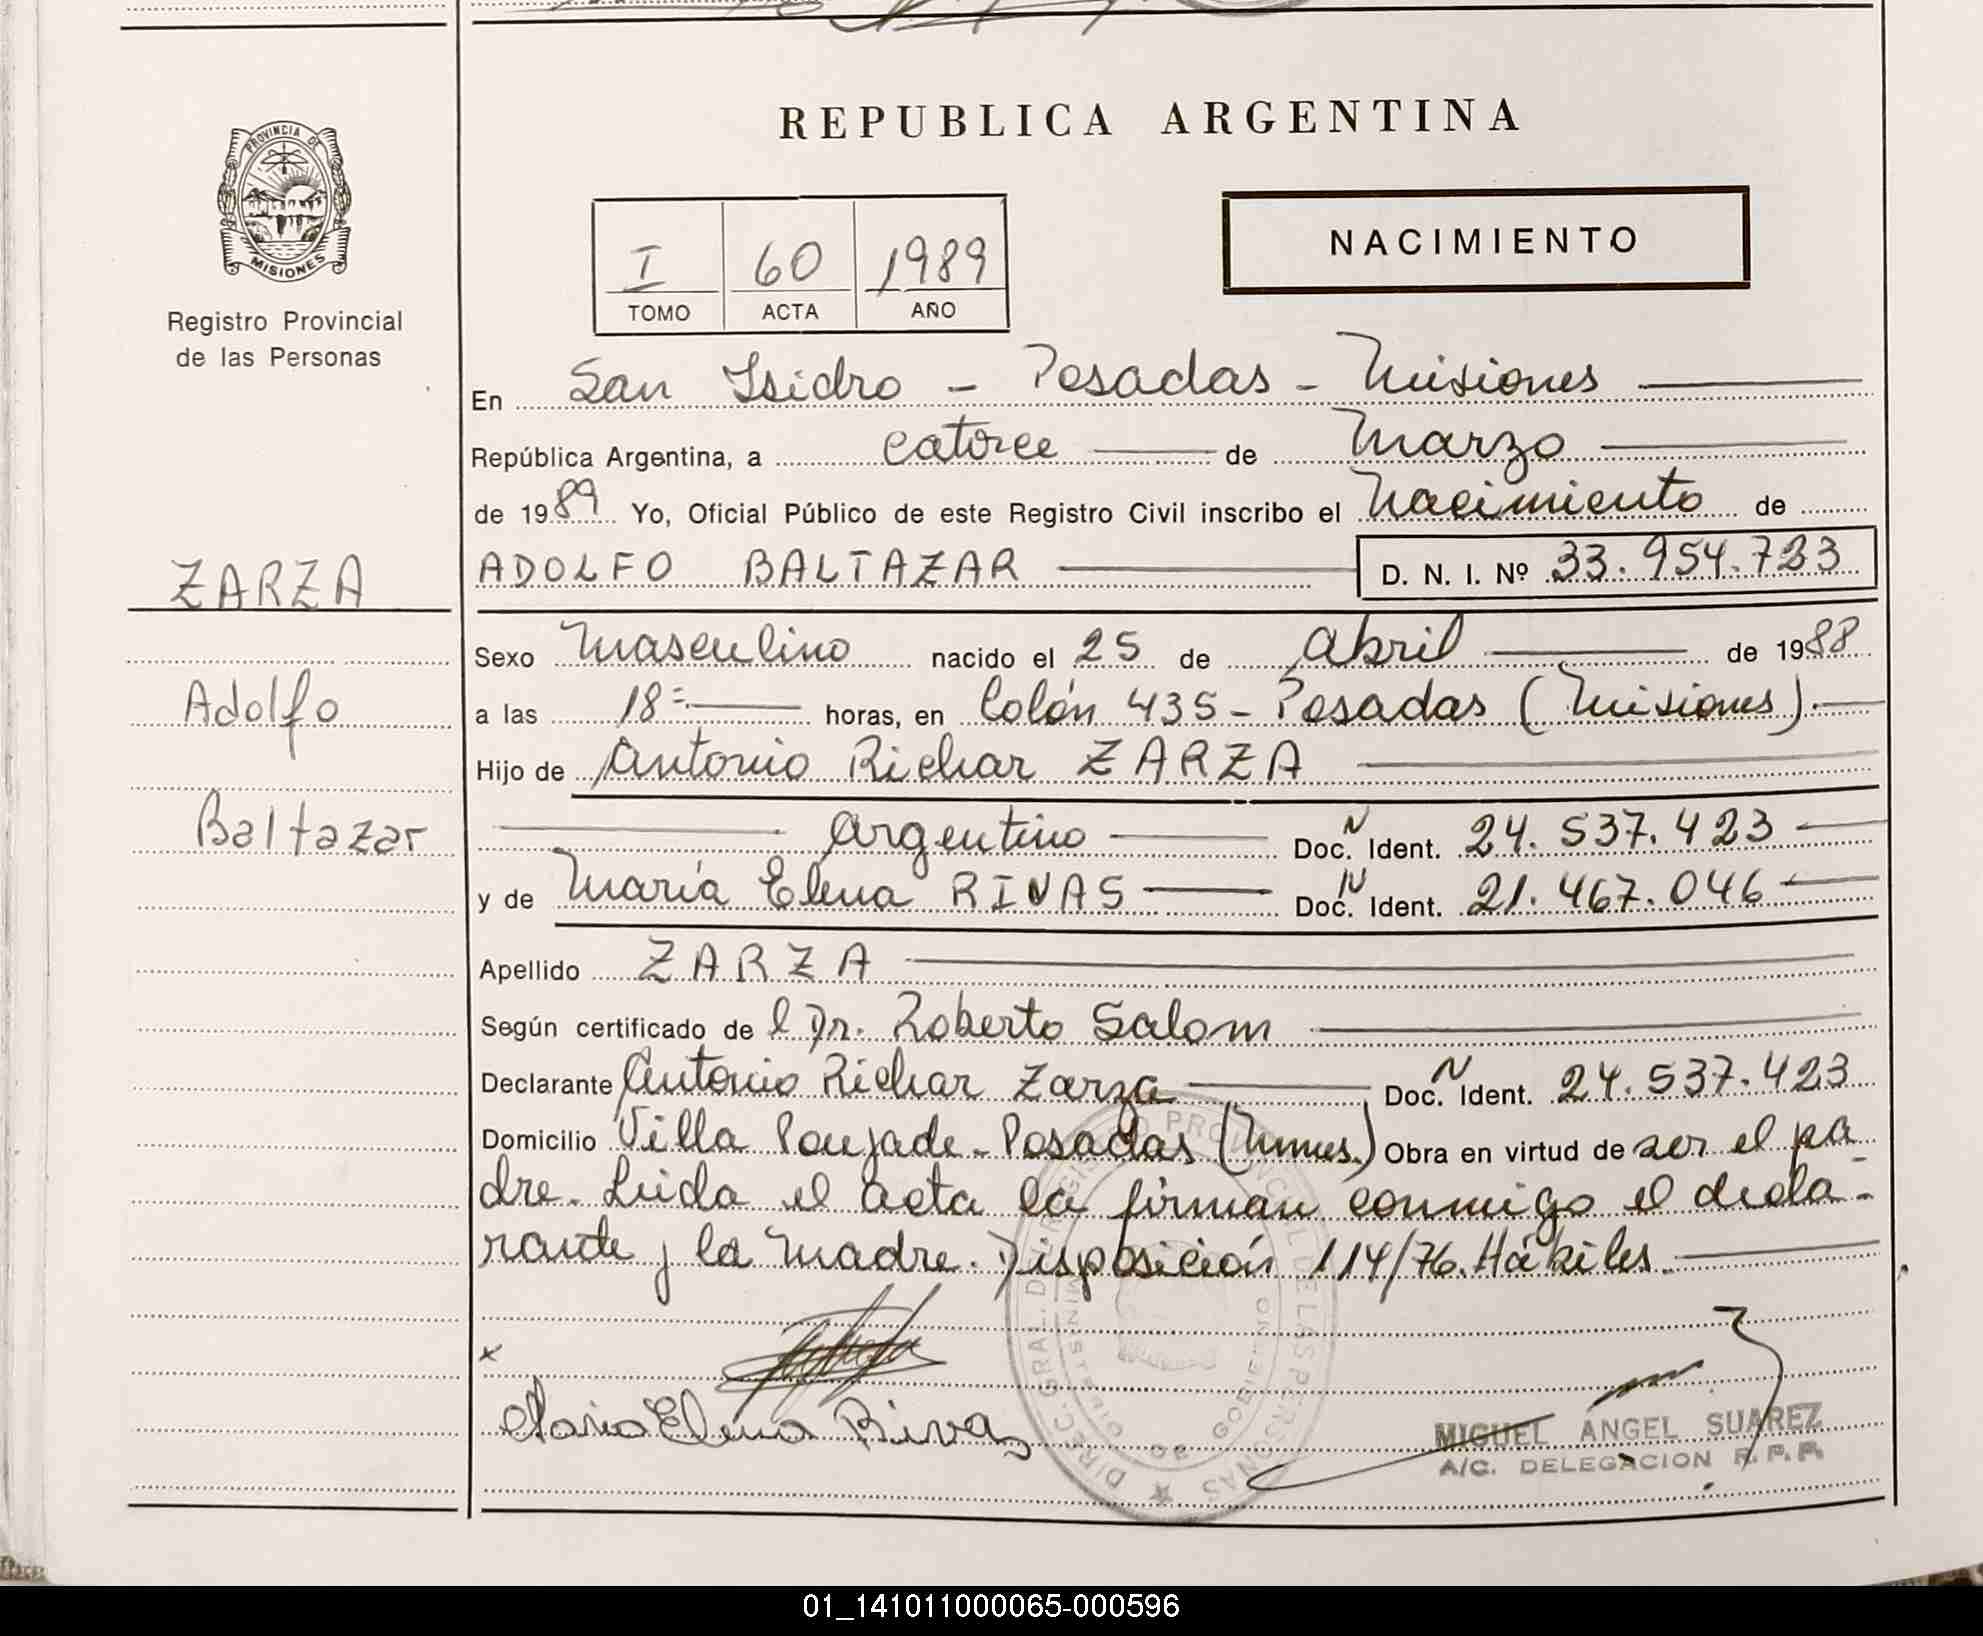 REPUBLICA ARGENTINA
PROVINCIA DE
MISIONES
Registro Provincial
de las Personas
I 60 1989
TOMO ACTA AÑO
NACIMIENTO
En San Isidro - Posadas - Misiones
República Argentina, a catorce de Marzo
de 1989 Yo, Oficial Público de este Registro Civil inscribo el Nacimiento de
ZARZA
ADOLFO BALTAZAR D. N. I. Nº 33.954.723
Sexo Masculino nacido el 25 de Abril de 1988
Adolfo
a las 18= horas, en Colón 435 - Posadas (Misiones).
Hijo de Antonio Richar ZARZA
Baltazar
Argentino Doc. N Ident. 24.537.423
y de María Elena RIVAS Doc. N Ident. 21.467.046
Apellido ZARZA
Según certificado de l Dr. Roberto Salom
Declarante Antonio Richar Zarza Doc. N Ident. 24.537.423
Domicilio Villa Poujade - Posadas (Mnes.) Obra en virtud de ser el pa
dre. Leída el acta la firman conmigo el decla-
rante y la madre. Disposición 114/76. Hábiles.
x
Maria Elena Rivas
DIREC. GRAL. DEL REGISTRO PROVINCIAL DE LAS PERSONAS
MINISTERIO DE GOBIERNO
MIGUEL ANGEL SUAREZ
A/C. DELEGACION R.P.P.
01_141011000065-000596